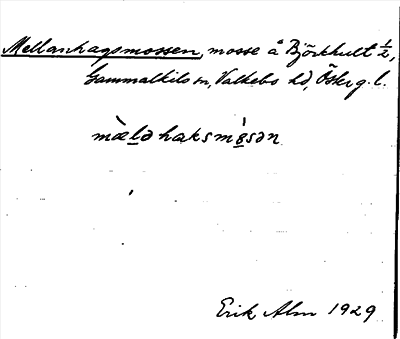 Mellanhagsmossen, mosse å Björkhult ½,
Gammalkils sn, Valkebo hd, Österg. l.
mæ̀lə haksmɷ́sən
Erik Alm 1929